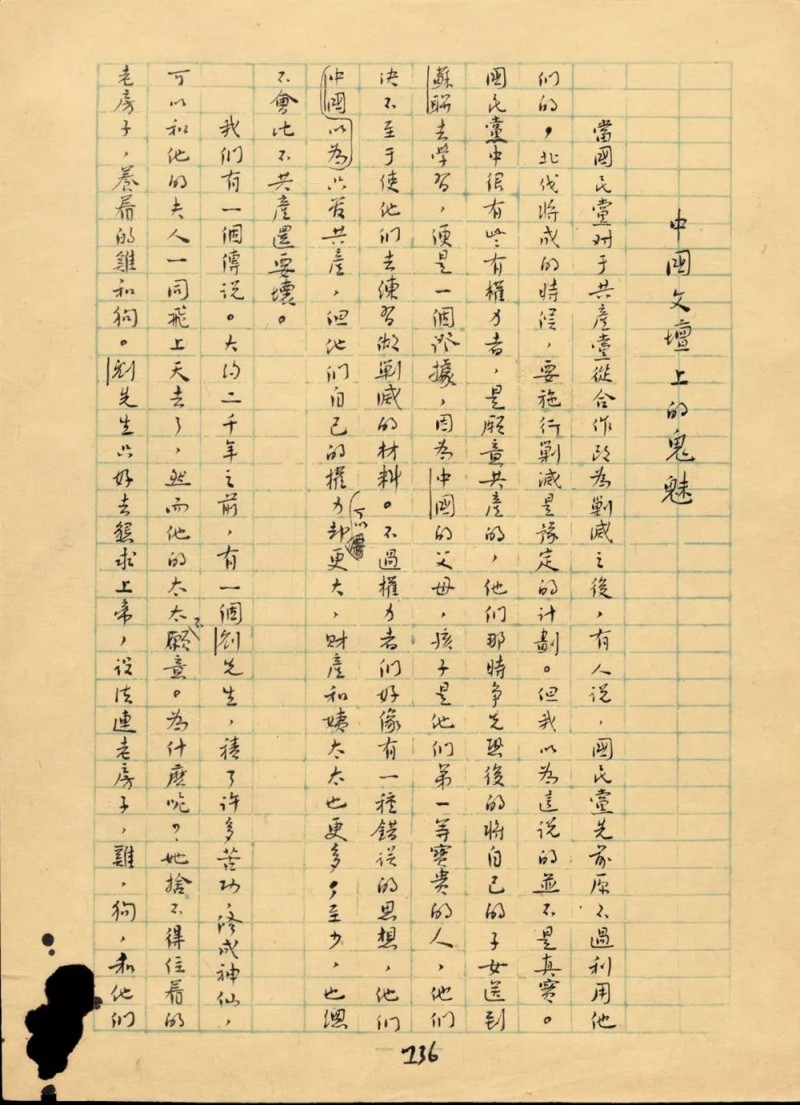 中國文壇上的鬼魅
當國民黨對于共產黨從合作改為剿滅之後，有人說，國民黨先前原不過利用他
們的，北伐將成的時候，要施行剿滅是豫定的計劃。但我以為這說的並不是真實。
國民黨中很有些有權力者，是願意共產的，他們那時爭先恐後的將自己的子女送到
蘇聯去學習，便是一個證據，因為中國的父母，孩子是他們第一等寶貴的人，他們
決不至于使他們去練習做剿滅的材料。不過權力者們好像有一種錯誤的思想，他們
中國以為只管共產，但他們自己的權力却可以更大，財產和姨太太也更多；至少，也總
不會比不共產還要壞。
我們有一個傳說。大約二千年之前，有一個劉先生，積了許多苦功，修成神仙，
可以和他的夫人一同飛上天去了，然而他的太太不願意。為什麼呢？她捨不得住着的
老房子，養着的雞和狗。劉先生只好去懇求上帝，設法連老房子，雞，狗，和他們
236